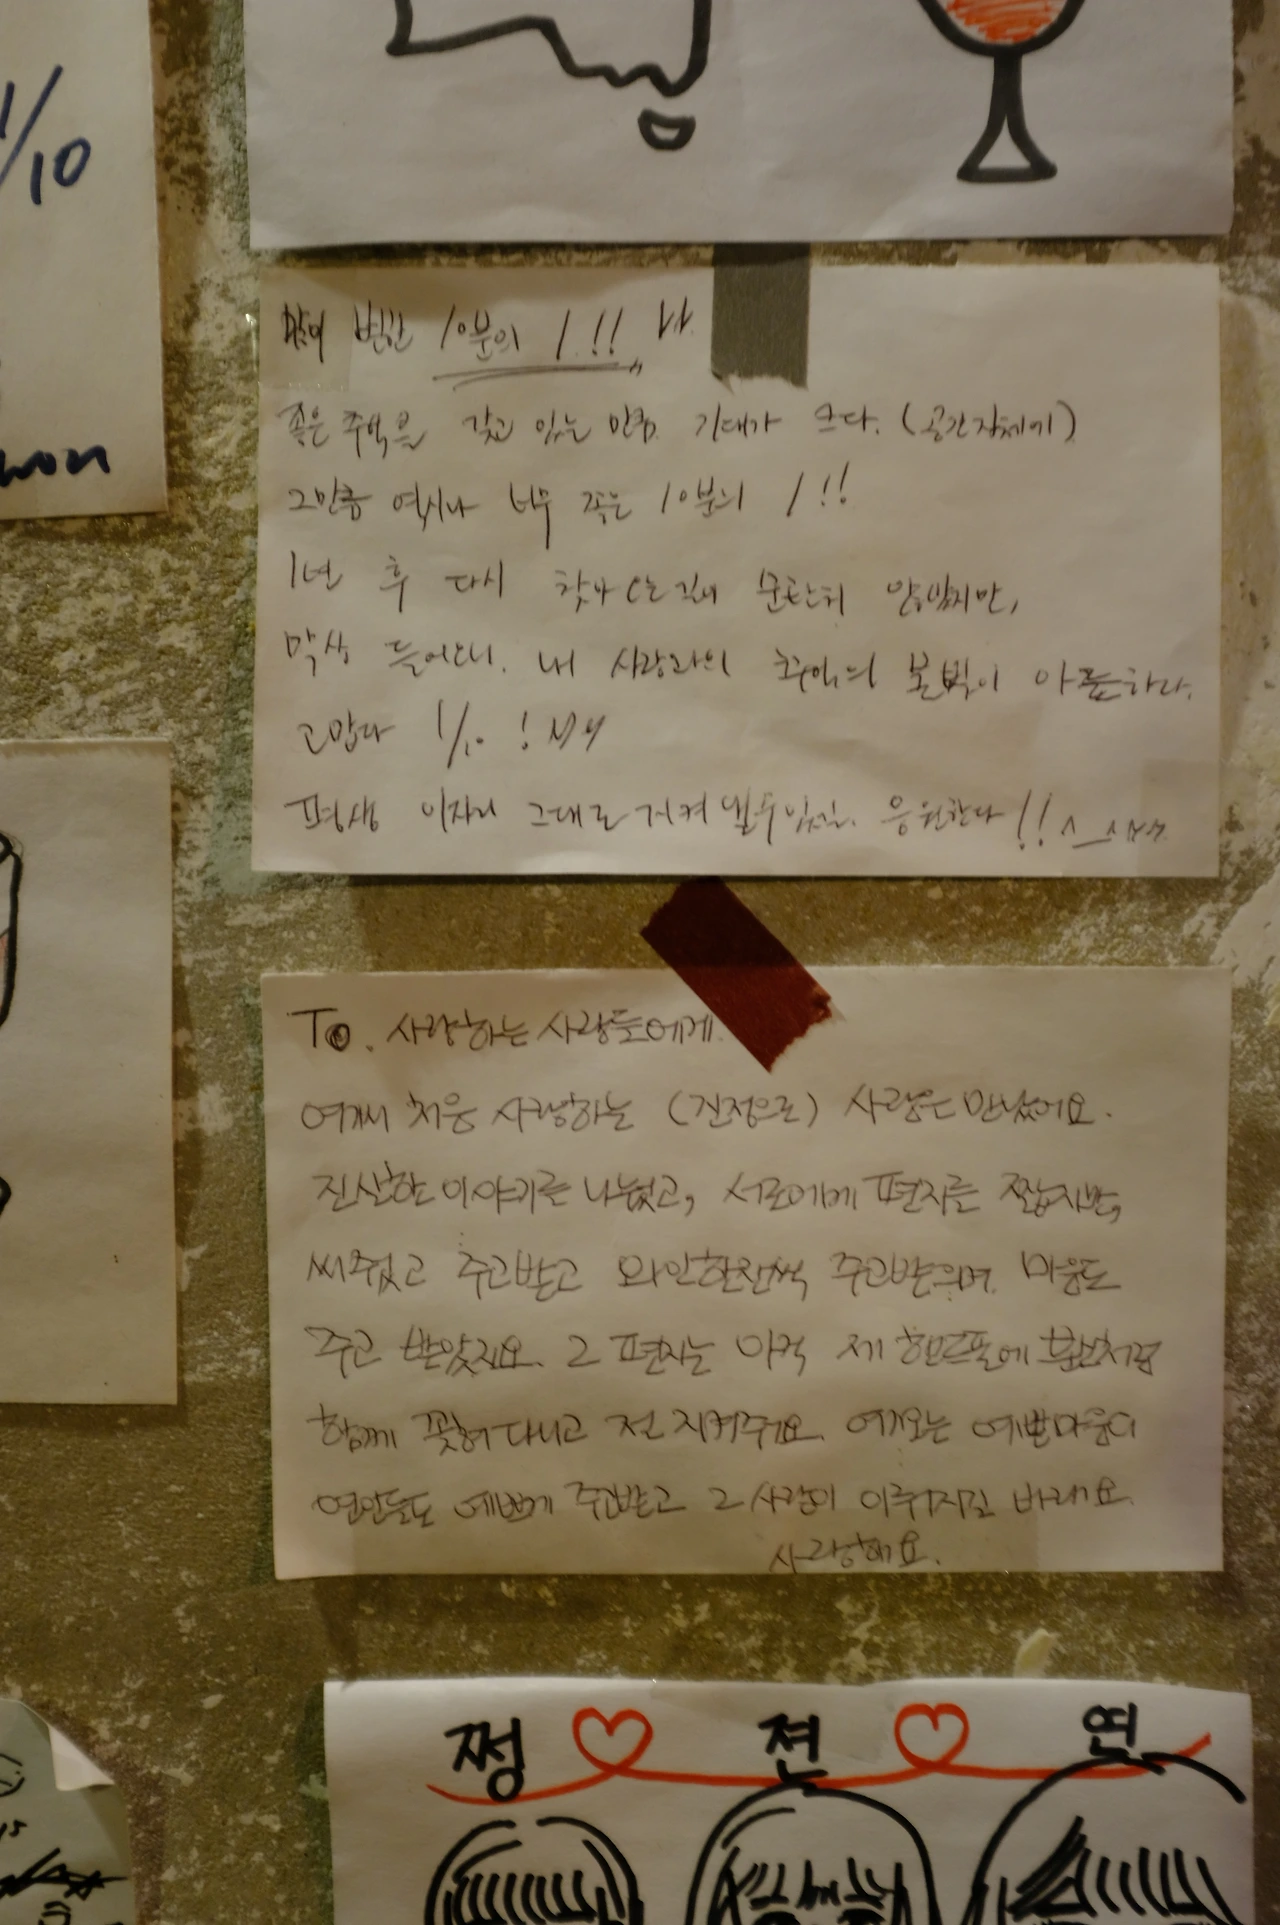 1/10
won
많이 변한 10분의 1.!!
좋은 추억을 갖고 있는 만큼 기대가 크다. (공간 자체에)
그만큼 역시나 너무 좋은 10분의 1!!
1년 후 다시 찾아오는 길이 순탄치 않았지만,
막상 들어오니. 내 사랑과의 추억의 불빛이 아른하다.
고맙다 1/10 !
평생 이자리 그대로 지켜 낼수있길. 응원한다 !! ^_^
To. 사랑하는 사람들에게.
여기서 처음 사랑하는 (진정으로) 사람을 만났어요.
진솔한 이야기를 나눴고, 서로에게 편지를 짧지만,
써주었고 주고받고 와인한잔씩 주고받으며. 마음도
주고 받았지요. 그 편지는 아직 제 핸드폰에
함께 꽂혀다니고 전 지켜줘요. 여기오는 예쁜마음의
연인들도 예쁘게 주고받고 그 사랑이 이뤄지길 바래요.
사랑해요.
쩡 젼 연